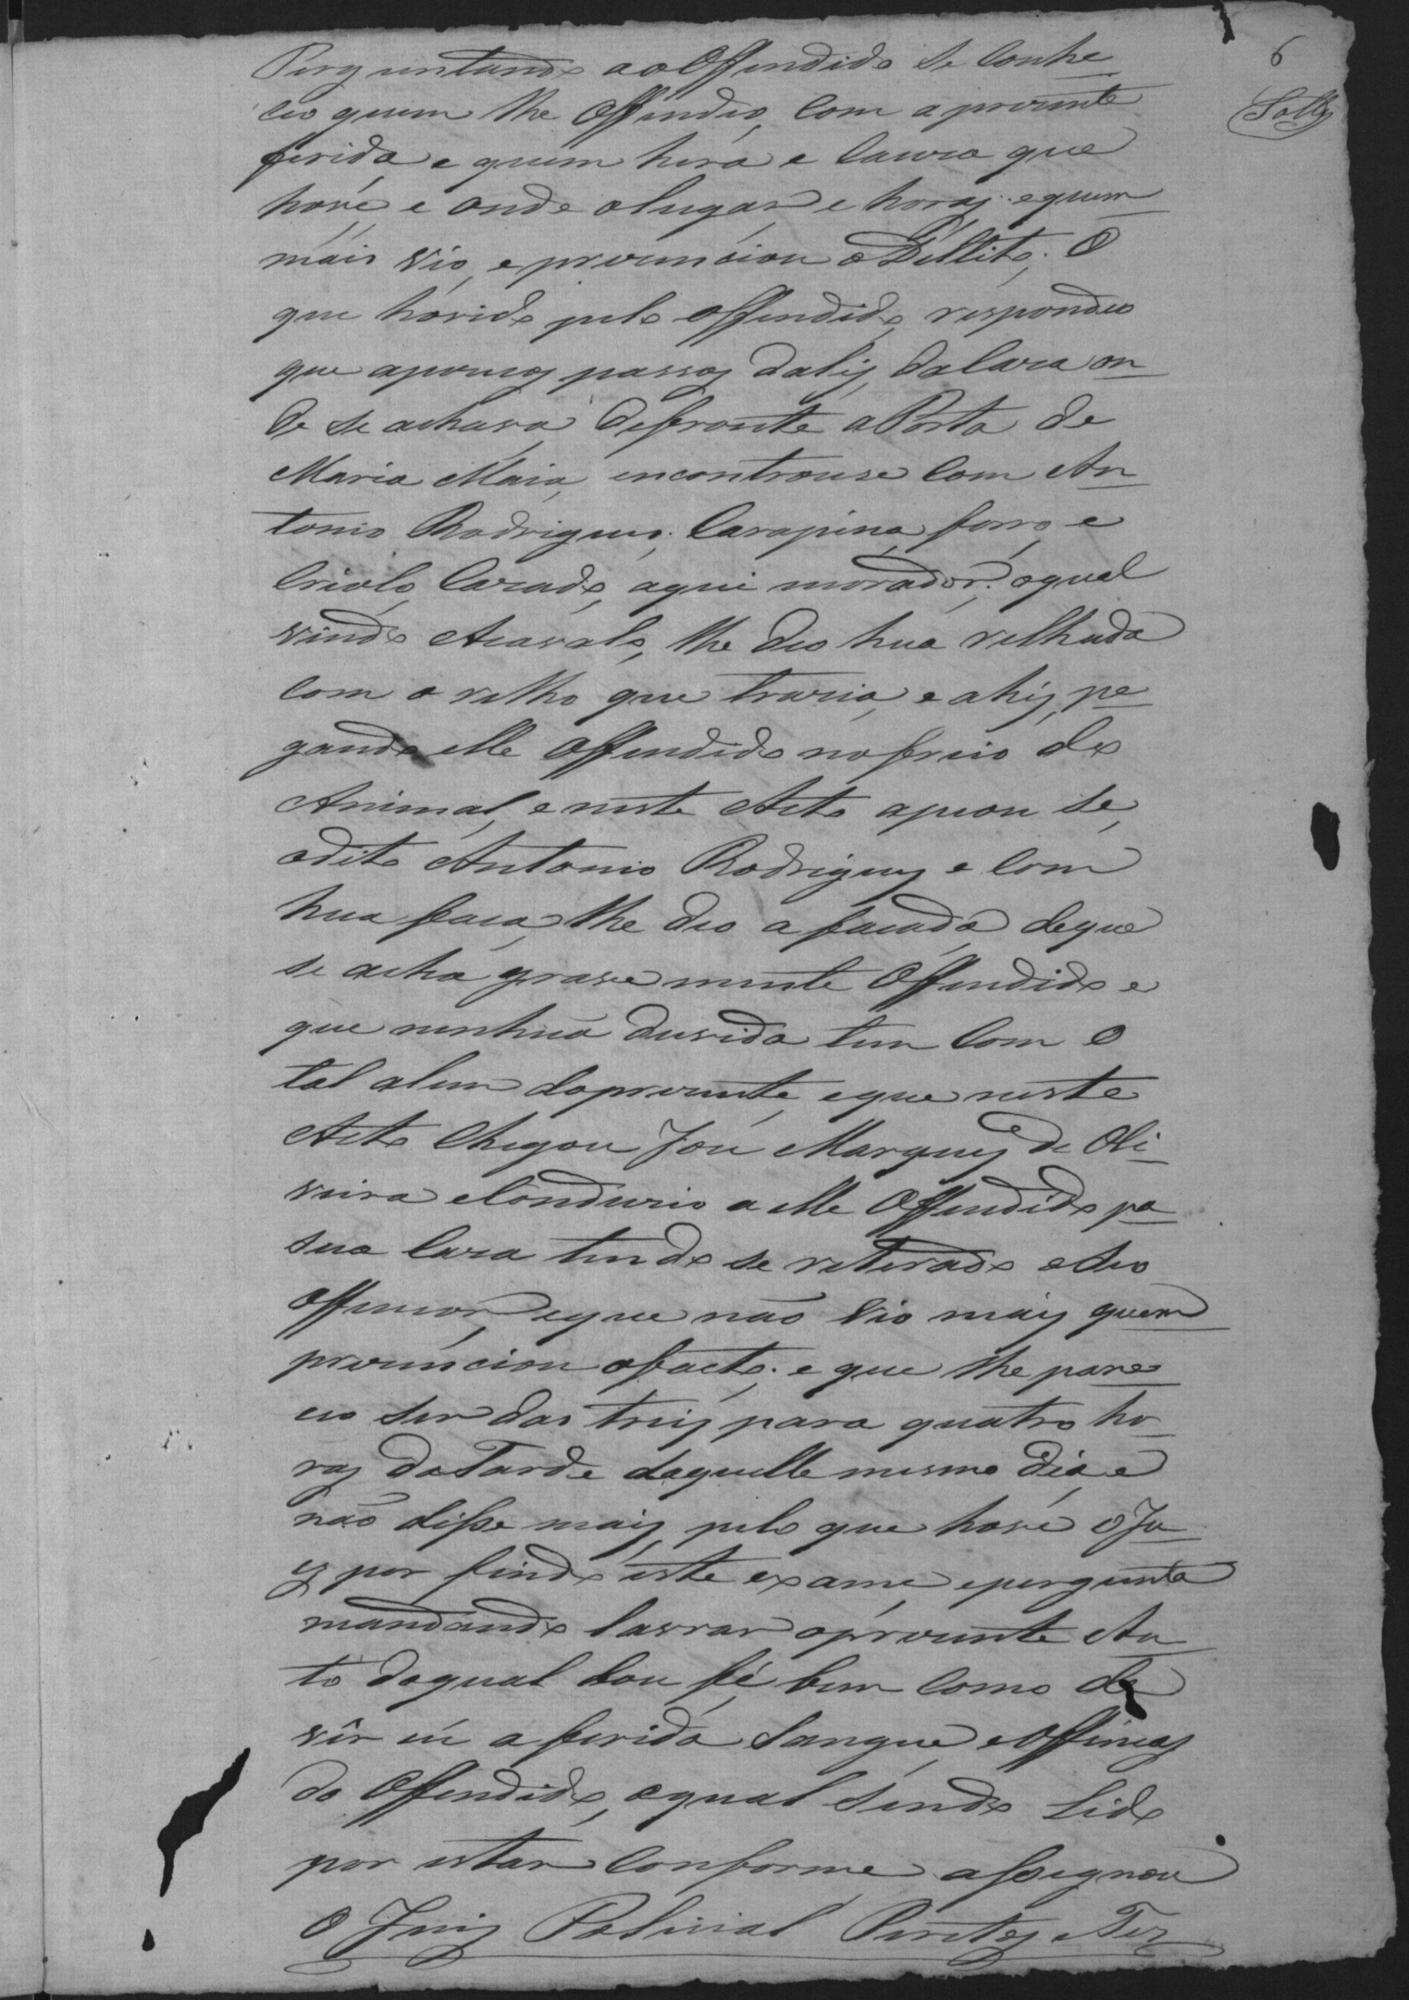 6
Salles
Perguntando ao Offendido se Conhe
ceo quem lhe Offendeo, Com a prezente
ferida, e quem hera e Cauza que
hove e onde o lugar e horas e quem
mais vio, e prezenciou o Dellito. O
que hovido pelo offendido, respondeo
que a poucos passos dahy da Caza on
de se achava defronte a Porta de
Maria Maia, encontrouse Com An
tonio Rodrigues, Carapina, forro, e
Criolo, Cazado, aqui morador, o qual
vindo Acavalo, lhe deo hua relhada
Com o relho que trazia, e ahy, pe
gando elle Offendido no freio do
Animal, e neste Acto apeou se,
o dito Antonio Rodrigues e Com
hua faca, lhe deo a facada de que
se acha grave mente Offendido e
que nenhua duvida tem Com o
tal alem da prezente, e que neste
Acto Chegou Joze Marques de Oli
veira e Conduzio a elle Offendido pa
sua Caza tendo se retirado o seo
Offençor, e que não vio mais quem
prezenciou o facto. e que lhe pare
ceo ser das treis para quatro ho
ras da Tarde daquelle mesmo dia, e
não disse mais, pelo que hove o Ju
iz por findo este exame, e pergunta
mandando lavrar o prezente Au
to do qual dou fé, bem Como de
ver eu a ferida Sangue, e Offenças
do Offendido, o qual Sendo Lido
por estar Conforme assignou
O Juiz Policial Peritos e Tez